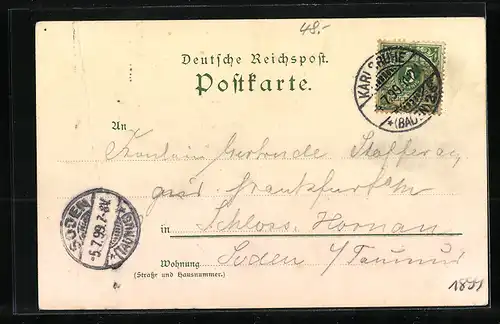 48.-
Deutsche Reichspost.
Postkarte.
KARLSRUHE
7.99
*(BADEN) 2
An
Fräulein Gertrude
Frankfurt a/m
SODEN
5.7.99.7-8V.
*(TAUNUS)*
in Schloss. Hornau
Soden i/Taunus
Wohnung
(Straße und Hausnummer.)
1899